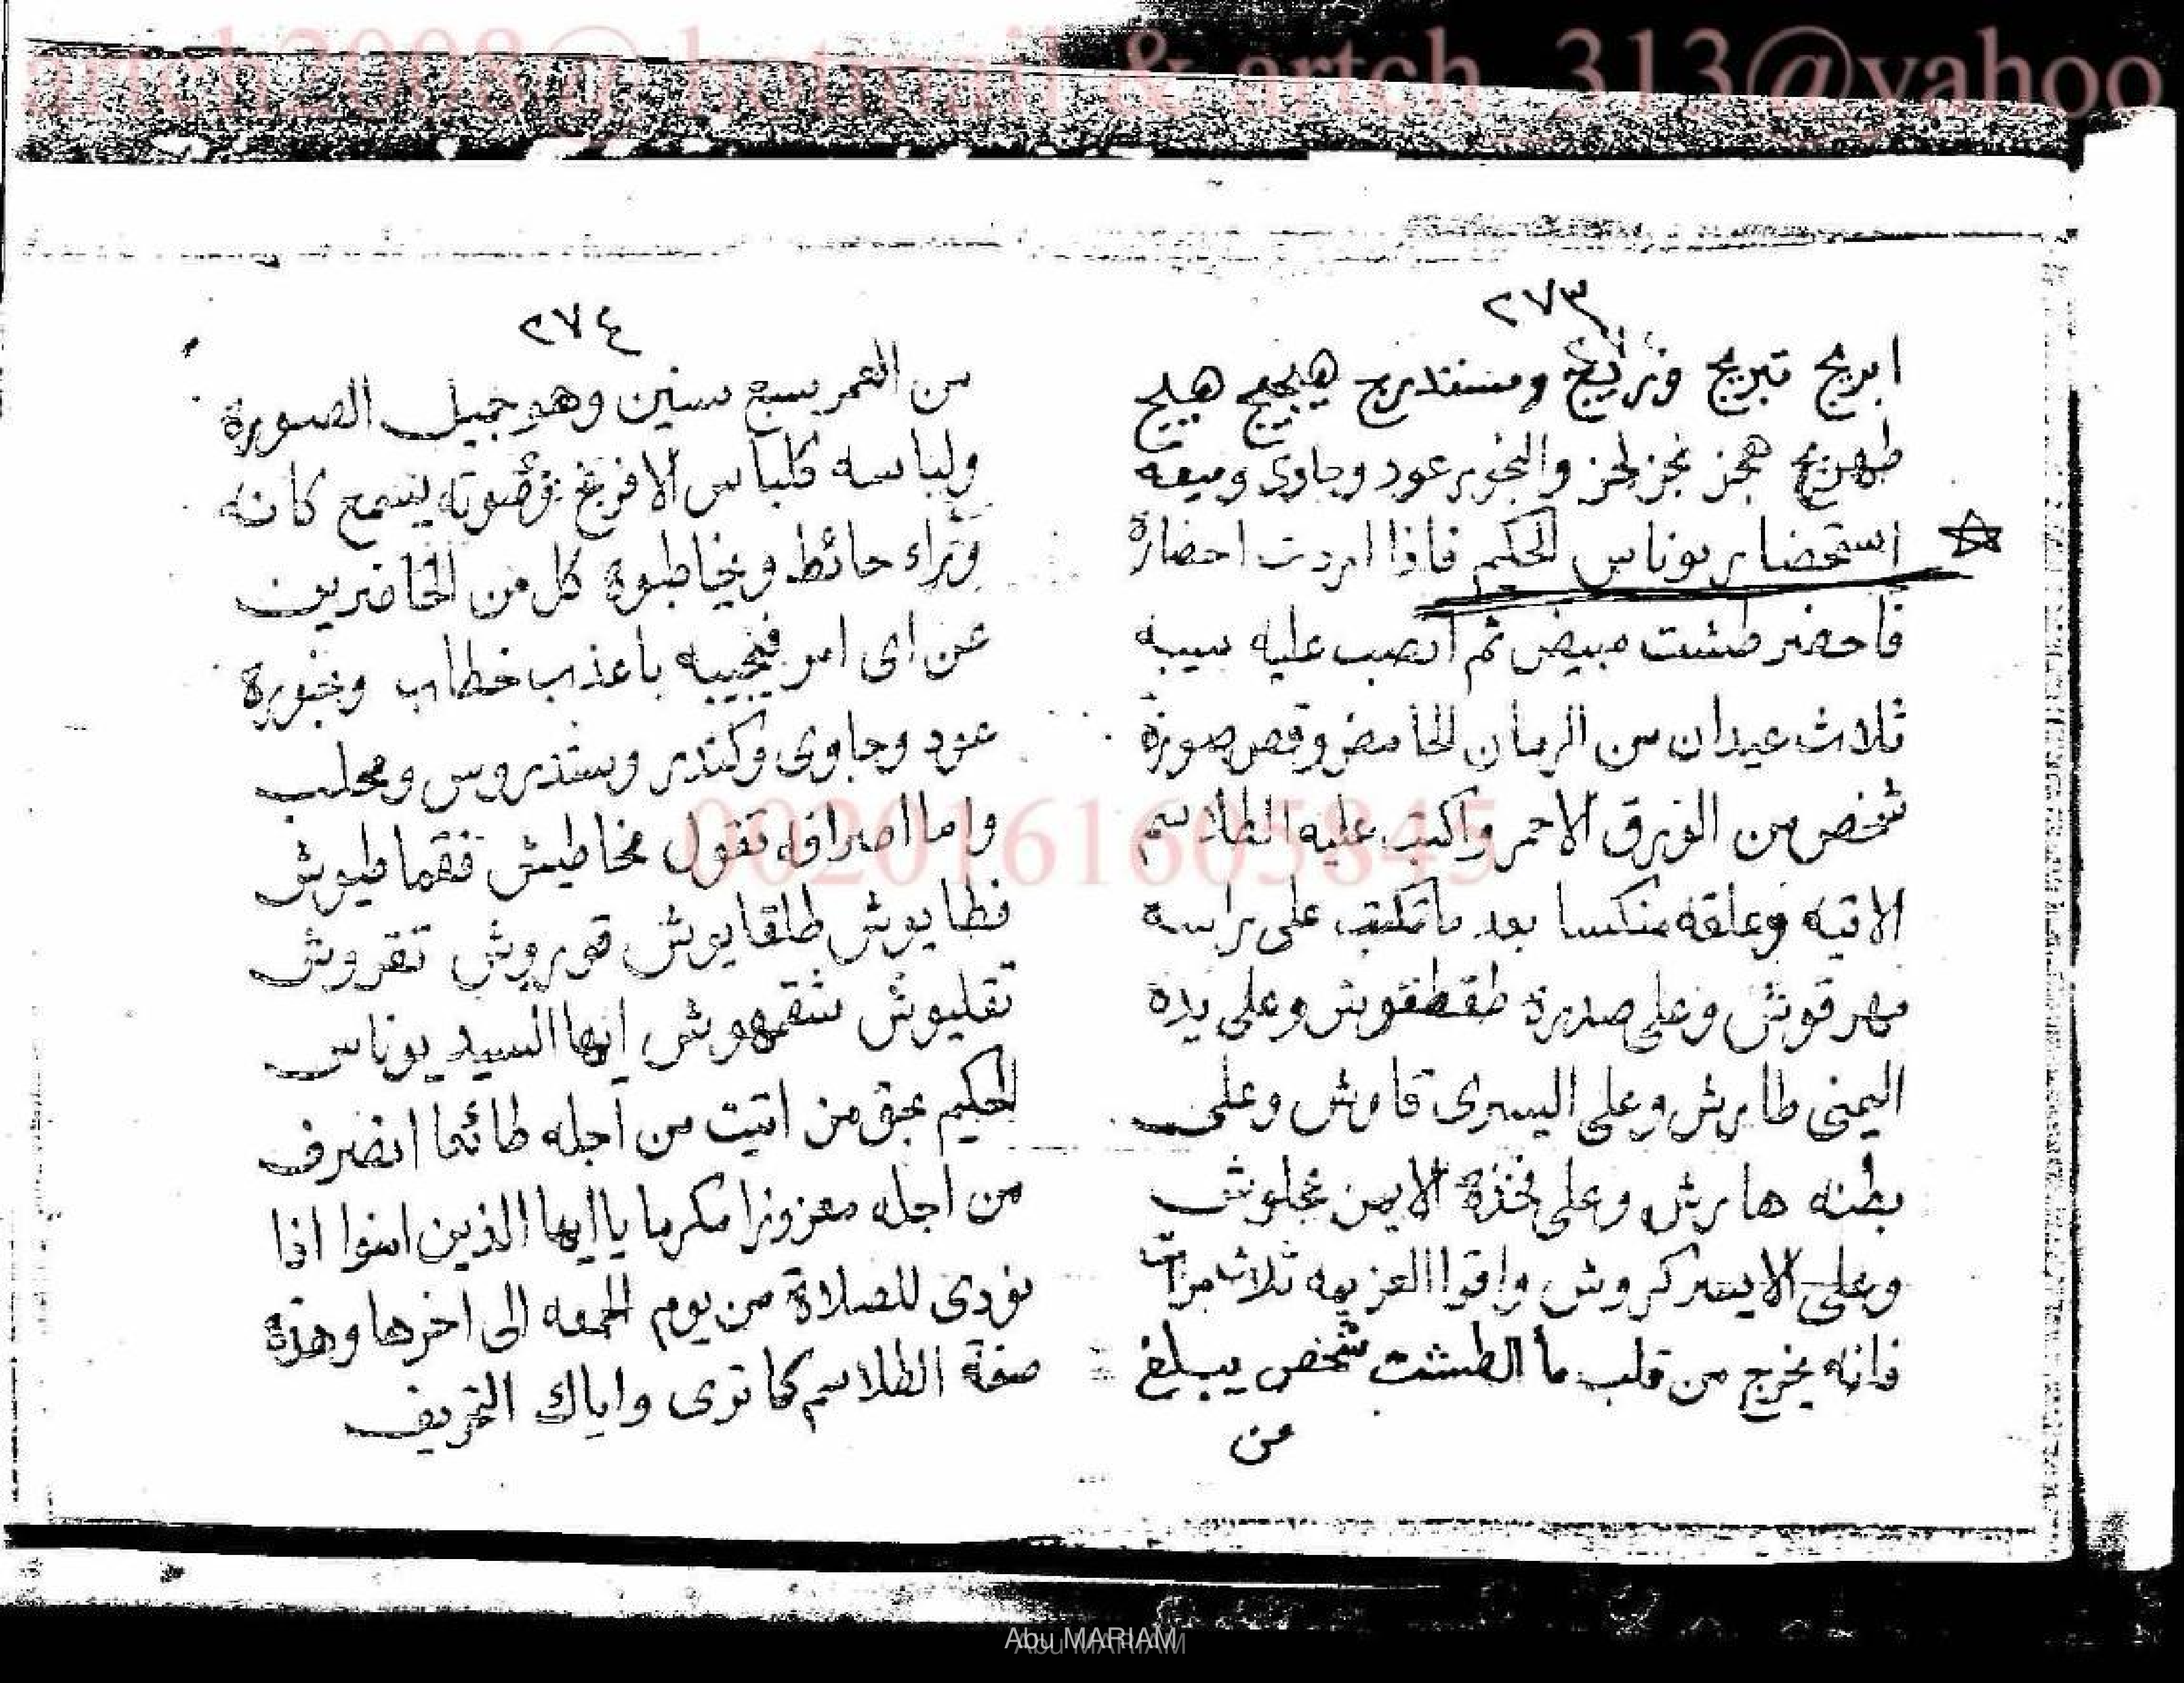 artch2008@ hotmail & artch_313@yahoo
٢٧٣
ابريج تبريج وسندريج هيجيج هيلج
هجز نجز لجز والبخور عود وجاوى وميعه
استحضار يوناس الحكيم فاذا اردت احضاره
فاحضر طشت مبيض ثم انصب عليه سيبه
ثلاث عيدان من الرمان الحامض وقص صورة
شخص من الورق الاحمر واكتب عليه الطلاسم
الاتيه وعلقه منكسا بعد ما تكتب على راسه
مهرقوش وعلى صدره طقطقوش وعلى يده
اليمنى طارش وعلى اليسرى قاوش وعلى
بطنه هارش وعلى فخذه الايمن عجلوش
وعلى الايسر كروش واقرا العزيمه ثلاث مرات
فانه يخرج من قلب ما الطشت شخص يبلغ
من
٢٧٤
من العمر سبع سنين وهو جميل الصورة
ولباسه كلباس الافرنج وصوته يسمع كانه
وراء حائط ويخاطبوه كل من الحاضرين
عن اى امر فيجيبه باعذب خطاب وبخوره
عود وجاوى وكندر وسندروس ومحلب
واما اصرافه تقول مخاطيش فقماطيوش
فطايوش طلقايوش قوروش تقروش
تقليوش شقمهوش ايها السيد يوناس
الحكيم بحق من اتيت من اجله طائعا انصرف
من اجله معزوزا مكرما ياايها الذين امنوا اذا
نودى للصلاة من يوم الجمعه الى اخرها وهذه
صفة الطلاسم كما ترى واياك التحريف
00201616605845
Abu MARIAM